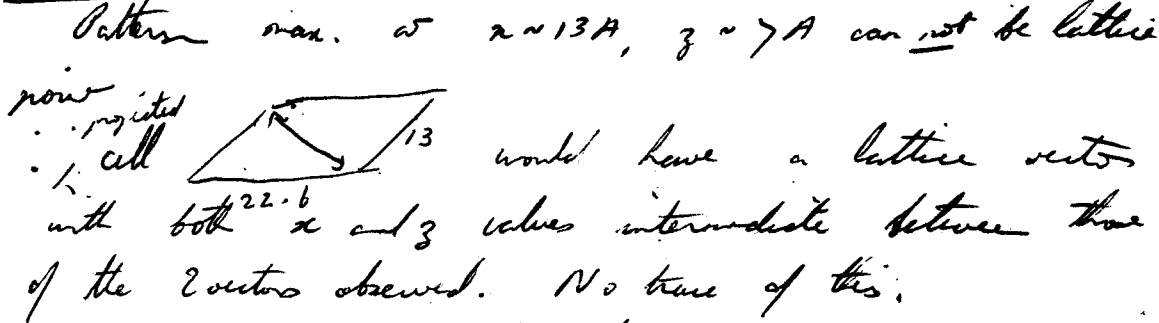 Patterson max. at x ~ 13A, z ~ 7A can not be lattice
point
∴ projected cell 13 would have a lattice vector
22.6
with both x and z values intermediate between those
of the 2 vectors observed. No trace of this.